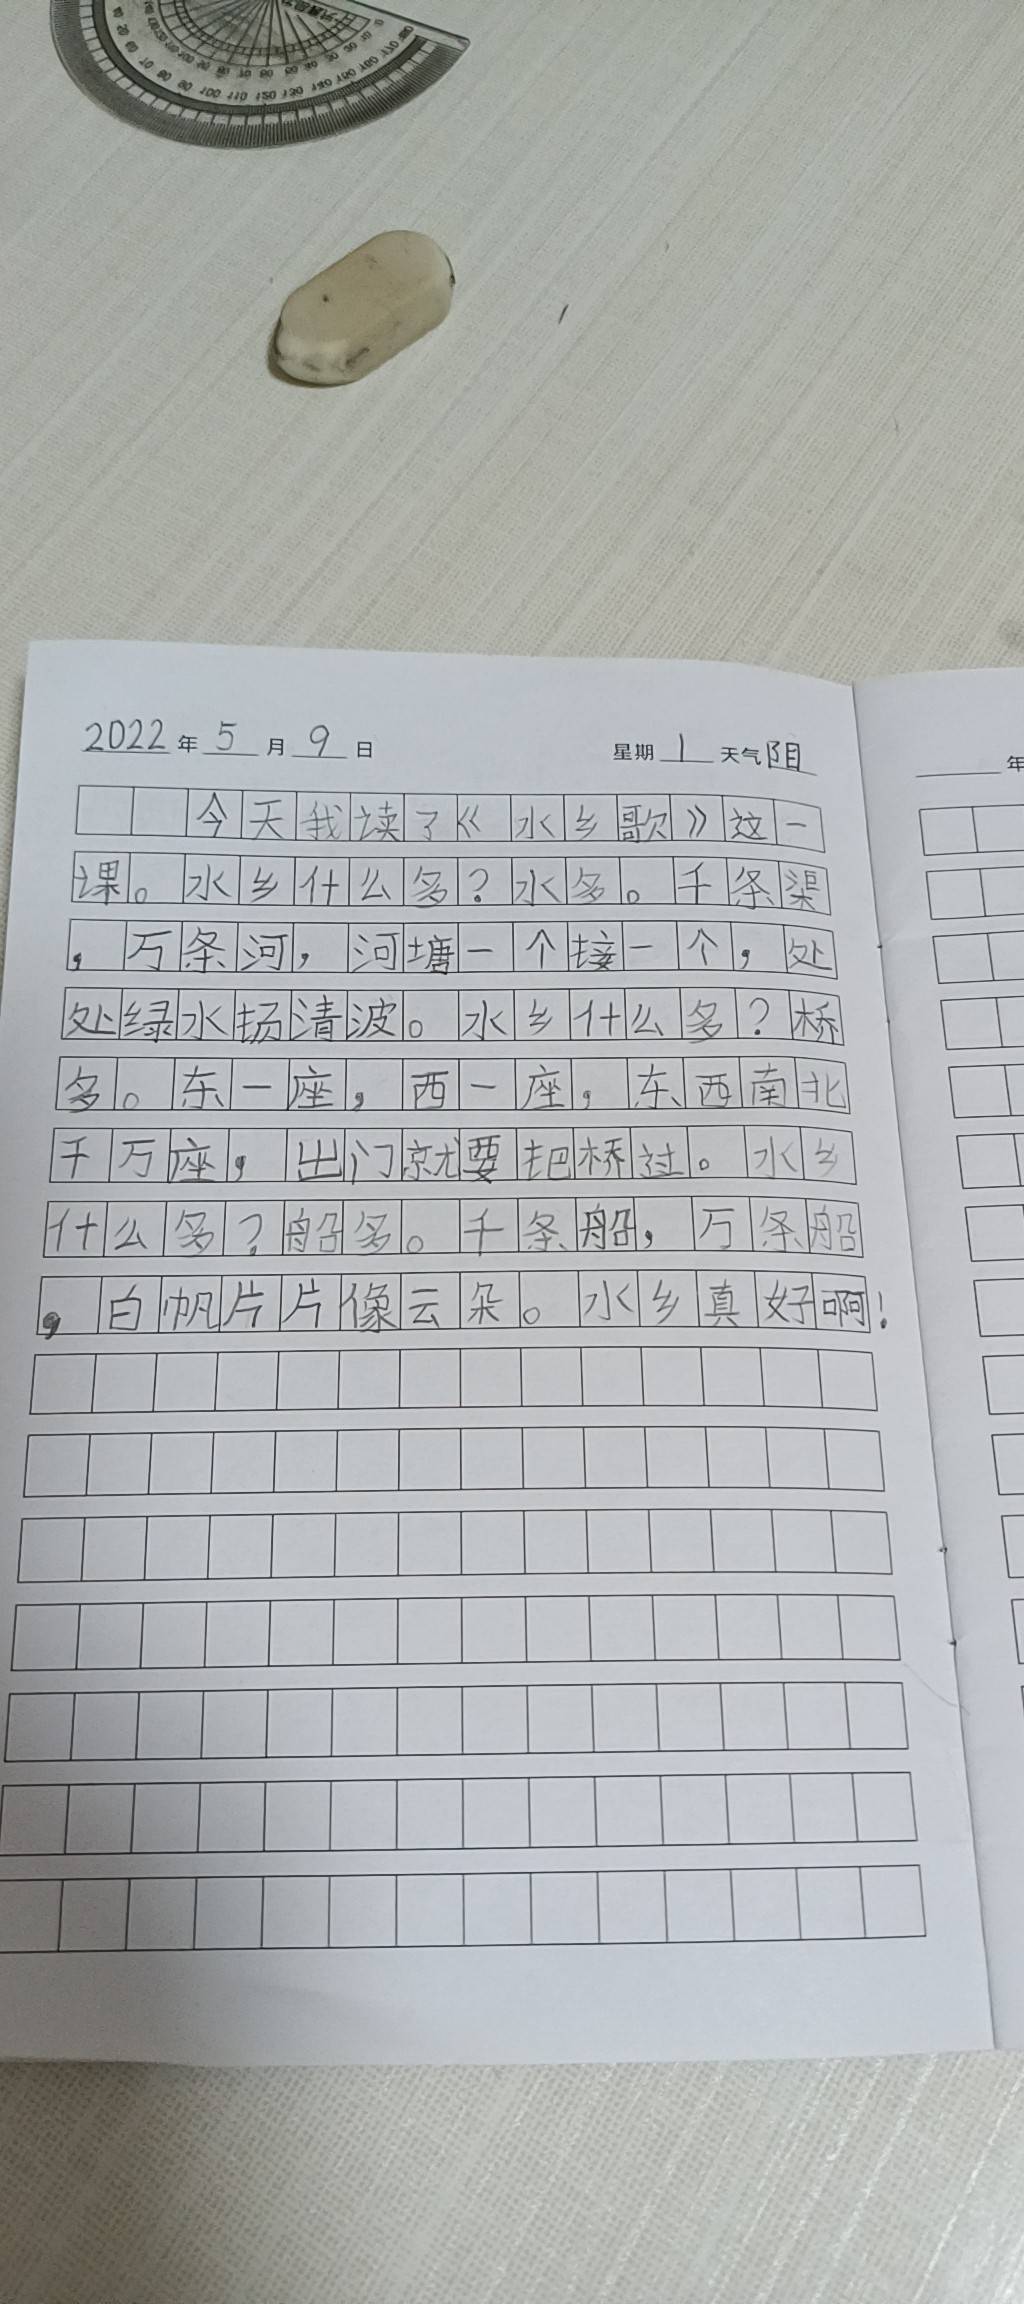 2022年5月9日 星期1 天气阴
今天我读了《水乡歌》这一
课。水乡什么多?水多。千条渠
,万条河,河塘一个接一个,处
处绿水扬清波。水乡什么多?桥
多。东一座,西一座,东西南北
千万座,出门就要把桥过。水乡
什么多?船多。千条船,万条船
,白帆片片像云朵。水乡真好啊!
年